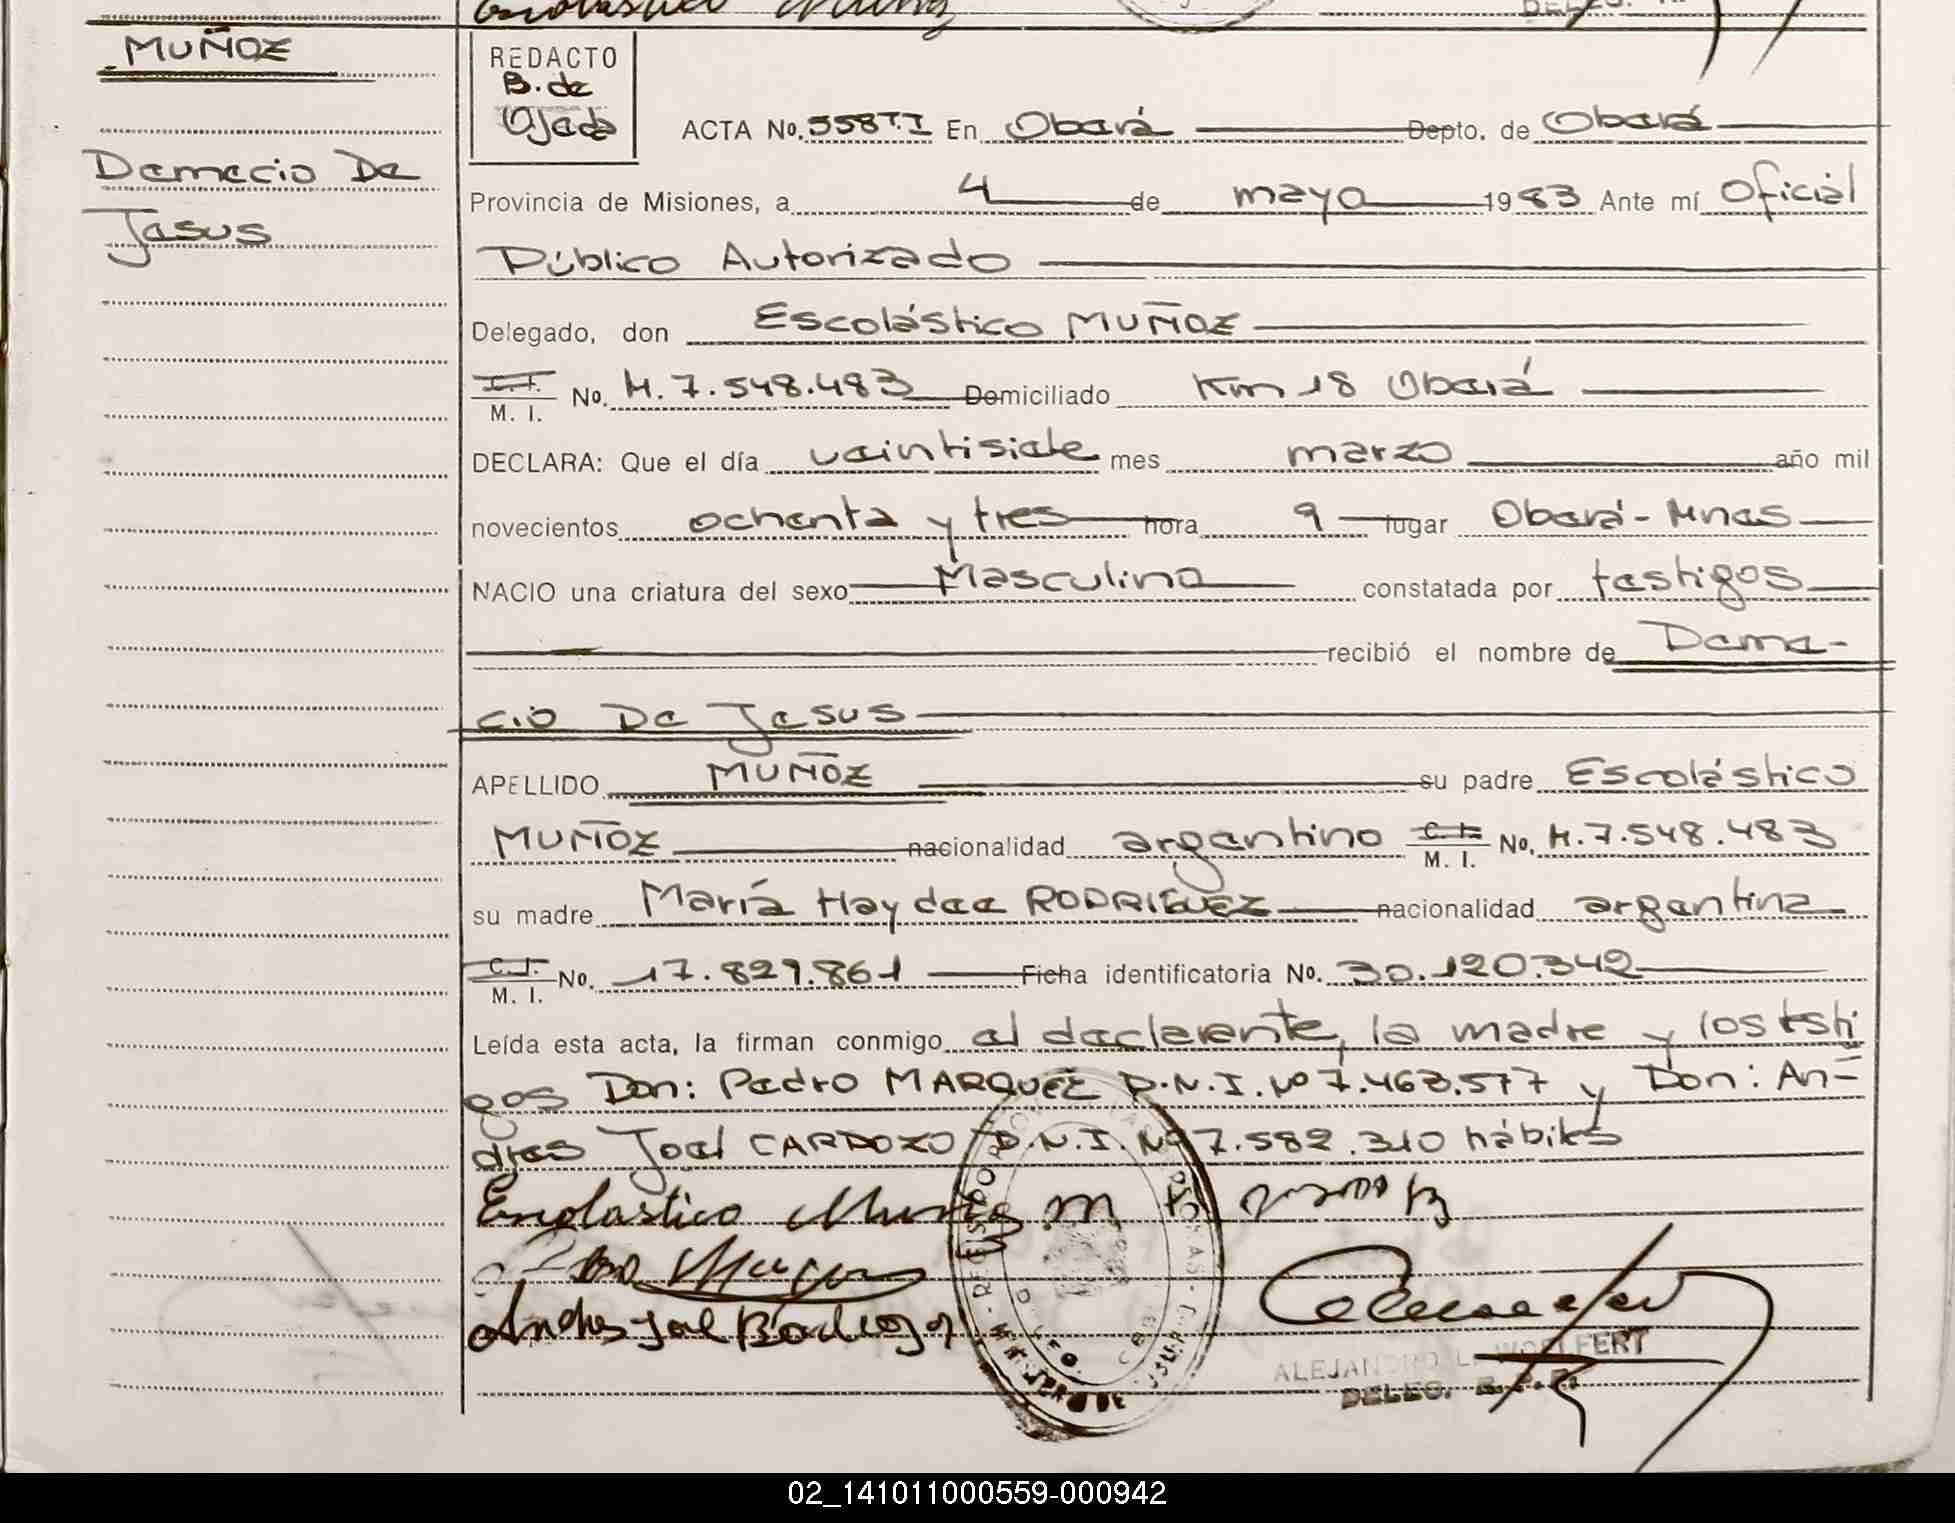 Escolastico Muñoz
MUÑOZ
Demecio De
Jesus
REDACTO
B. de
Ojeda
ACTA No. 558 T.I En Oberá Depto. de Oberá
Provincia de Misiones, a 4 de mayo 1983 Ante mí Oficial
Público Autorizado
Delegado, don Escolástico MUÑOZ
C.I. M. I. No. M. 7.548.483 Domiciliado Km 18 Oberá
DECLARA: Que el día veintisiete mes marzo año mil
novecientos ochenta y tres hora 9 lugar Oberá - Mnes
NACIO una criatura del sexo Masculino constatada por testigos
recibió el nombre de Deme-
cio De Jesus
APELLIDO MUÑOZ su padre Escolástico
MUÑOZ nacionalidad argentino C.I. M. I. No. M. 7.548.483
su madre María Haydee RODRIGUEZ nacionalidad argentina
C.I. M. I. No. 17.829.861 Ficha identificatoria No. 30.120.342
Leída esta acta, la firman conmigo el declarante, la madre y los testi
gos Don: Pedro MARQUEZ D.N.I. Nº 7.463.577 y Don: An-
dres Joel CARDOZO D.N.I. Nº 7.582.310 hábiles
Escolastico Muñoz m
Andres Joel
ALEJANDRO L. WOLFERT
DELEG.
02_141011000559-000942